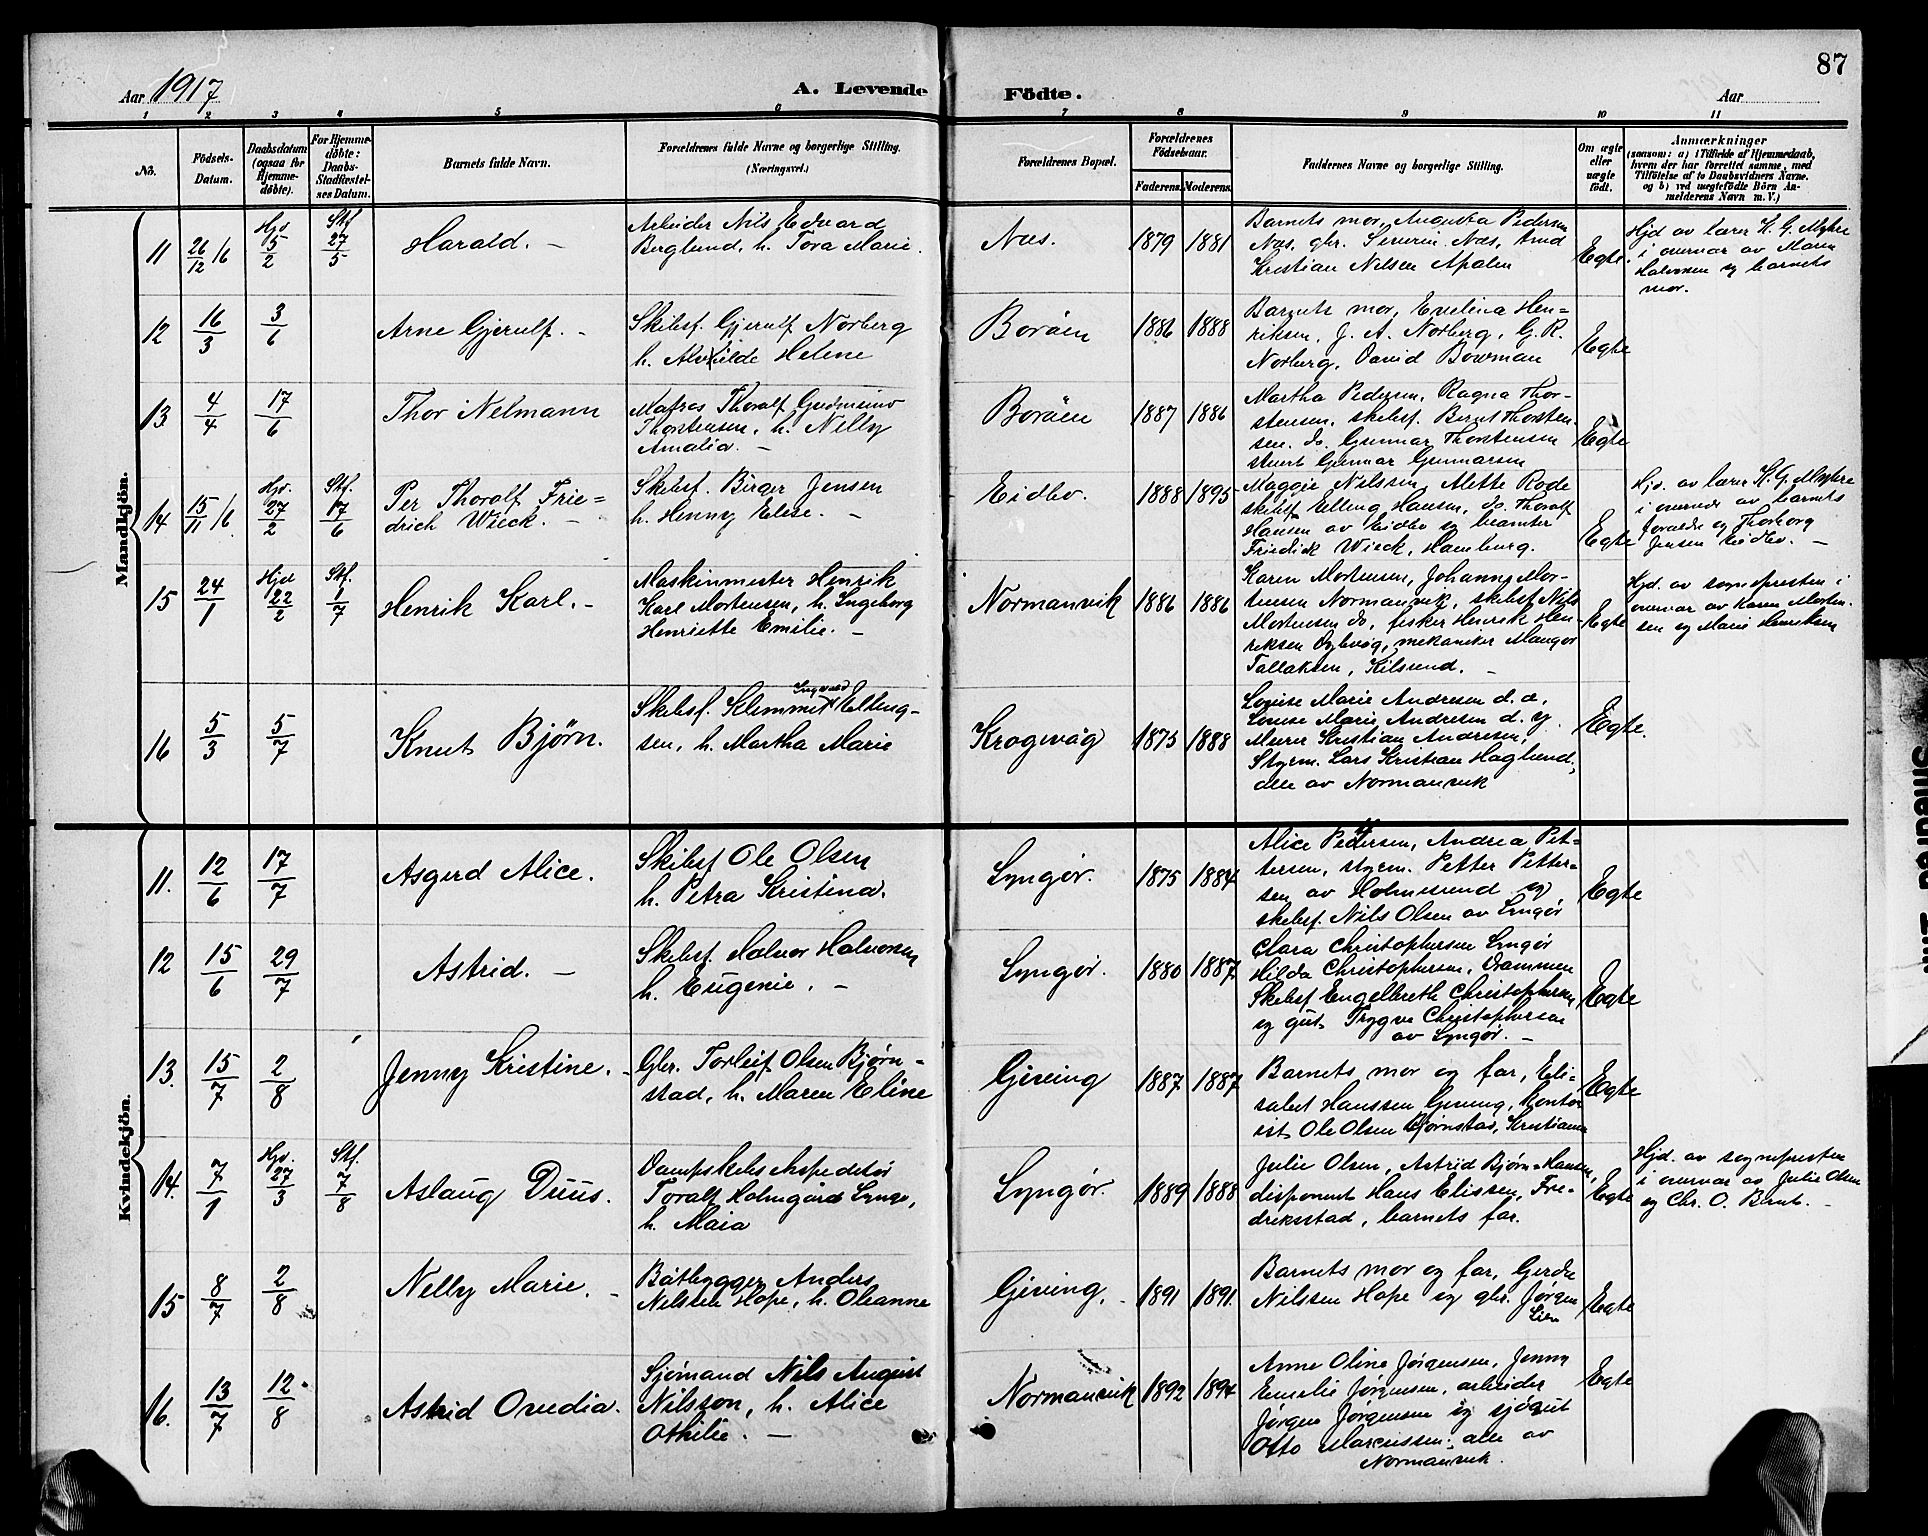 87
Aar 1917
A. Levende
Födte.
Aar
1 2 3 4 5 6 7 8 9 10 11
No.
Födsels-
Datum.
Daabsdatum
(ogsaa for
Hjemme-
döbte).
For Hjemme-
döbte:
Daabs-
Stadfæstel-
ses Datum.
Barnets fulde Navn.
Forældrenes fulde Navne og borgerlige Stilling.
(Næringsvei.)
Forældrenes Bopæl.
Forældrenes
Födselsaar.
Faderens. Moderens.
Faddernes Navne og borgerlige Stilling.
Om ægte
eller
uægte
födt.
Anmærkninger
(saasom: a) i Tilfælde af Hjemmedaab,
hvem der har forrettet samme, med
Tilföielse af to Daabsvidners Navne.
og b) ved uægtefödte Börn An-
melderens Navn m. V.)
Mandkjön.
11 26/12 16 Hjd 5/2 Stf 27/5
Harald. –
Arbeider Nils Edvard
Berglund, h. Tora Marie.
Næs. 1879 1881
Barnets mor, Augusta Pedersen
Næs, gbr. Severin Næs,
Kristian Nilsen Apalen
Egte.
Hjd av lærer K. G. Myhre
i overvær av Maren
Halvorsen og barnets
mor.
12 16/3 3/6
Arne Gjerulf. –
Skibsf. Gjerulf Norberg
h. Alvilde Helene
Borøen 1886 1888
Barnets mor, Evelina Hen=
riksen, J. A. Norberg, G. R.
Norberg, David Bowman
Egte
13 4/4 17/6
Thor Nelmann
Matros Thoralf Gudmund
Thorstensen, h. Nelly
Amalia. –
Borøen 1887 1886
Martha Pedersen, Ragna Thor-
stensen, skibsf. Bernt Thorsten-
sen. do. Gunnar Thorstensen
stuert Gunnar Gunnarsen
Egte
14 15/11 16 Hjd. 27/2 Stf. 17/6
Per Thoralf Frie=
drich Wieck. –
Skibsf. Birger Jensen
h. Henny Elise. –
Eidbo. 1888 1895
Maggie Nilssen, Alette Rode
skibsf Elling Hansen, do. Thoralf
Hansen av Eidbo og beamter
Friedrick Wieck, Hamburg.
Egte
Hjd. av lærer K. G. Myhre
i overvær av barnets
forældre og Thorborg
Jensen Eidbo. –
15 24/1 Hjd 22/2 Stf. 1/7
Henrik Karl. –
Maskinmester Henrik
Karl Mortensen, h. Ingeborg
Henriette Emilie. –
Normanvik 1886 1886
Karen Mortensen, Johanne Mor-
tensen Normanvik, skibsf Nils
Mortensen do, fisker Henrik Hen-
riksen Dybvåg, mekaniker Mangor
Tallaksen, Kilsund. –
Egte
Hjd. av sognepresten i
overvær av Karen Morten-
sen og Marie Henriksen
16 5/3 5/7
Knut Bjørn.
Ingvald
Skibsf. Klemmet Elling-
sen, h. Martha Marie
Krogevåg 1875 1888
Louise Marie Andresen d. æ,
Louise Marie Andresen d. y.
Murer Kristian Andresen,
Styrm. Lars Kristian Haglund,
alle av Normanvik
Egte.
Kvindekjön.
11. 12/6 17/7
Asgerd Alice.
Skibsf Ole Olsen
h. Petra Kristina.
Lyngør. 1875 1884
Alice Pettersen, Andrea Pet=
tersen, styrm. Petter Petter=
sen av Holmesund og
skibsf. Nils Olsen av Lyngør
Egte
12 15/6 29/7
Astrid. –
Skibsf. Halvor Halvorsen
h. Eugenie. –
Lyngør. 1880 1887
Clara Christophersen Lyngør
Hilda Christophersen, Drammen
Skibsf Engelbreth Christophersen
og gut Trygve Christophersen
av Lyngør. –
Egte
13. 15/7 2/8
Jenny Kristine. –
Gbr. Torleif Olsen Bjørn-
stad, h. Maren Eline
Gjeving 1887 1887
Barnets mor og far, Eli-
sabet Hanssen Gjeving, kontor
ist Ole Olsen Bjørnstad, Kristiania
Egte
14. 7/1 Hjd. 27/3 Stf. 7/8
Aslaug Duus.
Dampskibsexpeditør
Toralf Holmgård Lynge,
h. Maia
Lyngør. 1889 1888
Julie Olsen, Astrid Bjørn-Hansen,
disponent Hans Elissen, Fre-
driksstad, barnets far.
Egte
Hjd. av sognepresten
i overvær av Julie Olsen
og Chr. O. Bernt. –
15 8/7 2/8
Nelly Marie. –
Båtbygger Anders
Nilssen Hope, h. Oleanne
Gjeving. 1891 1891.
Barnets mor og far, Gerda
Nilssen Hope og gbr. Jørgen
Lien
Egte
16. 13/7 12/8
Astrid Ovedia.
Sjømand Nils August
Nilsson, h. Alice
Othilie. –
Normanvik 1892 1894
Anne Oline Jørgensen, Jenny
Emelie Jørgensen, arbeider
Jørgen Jørgensen og sjøgut
Otto Marcussen, alle av
Normanvik.
Egte